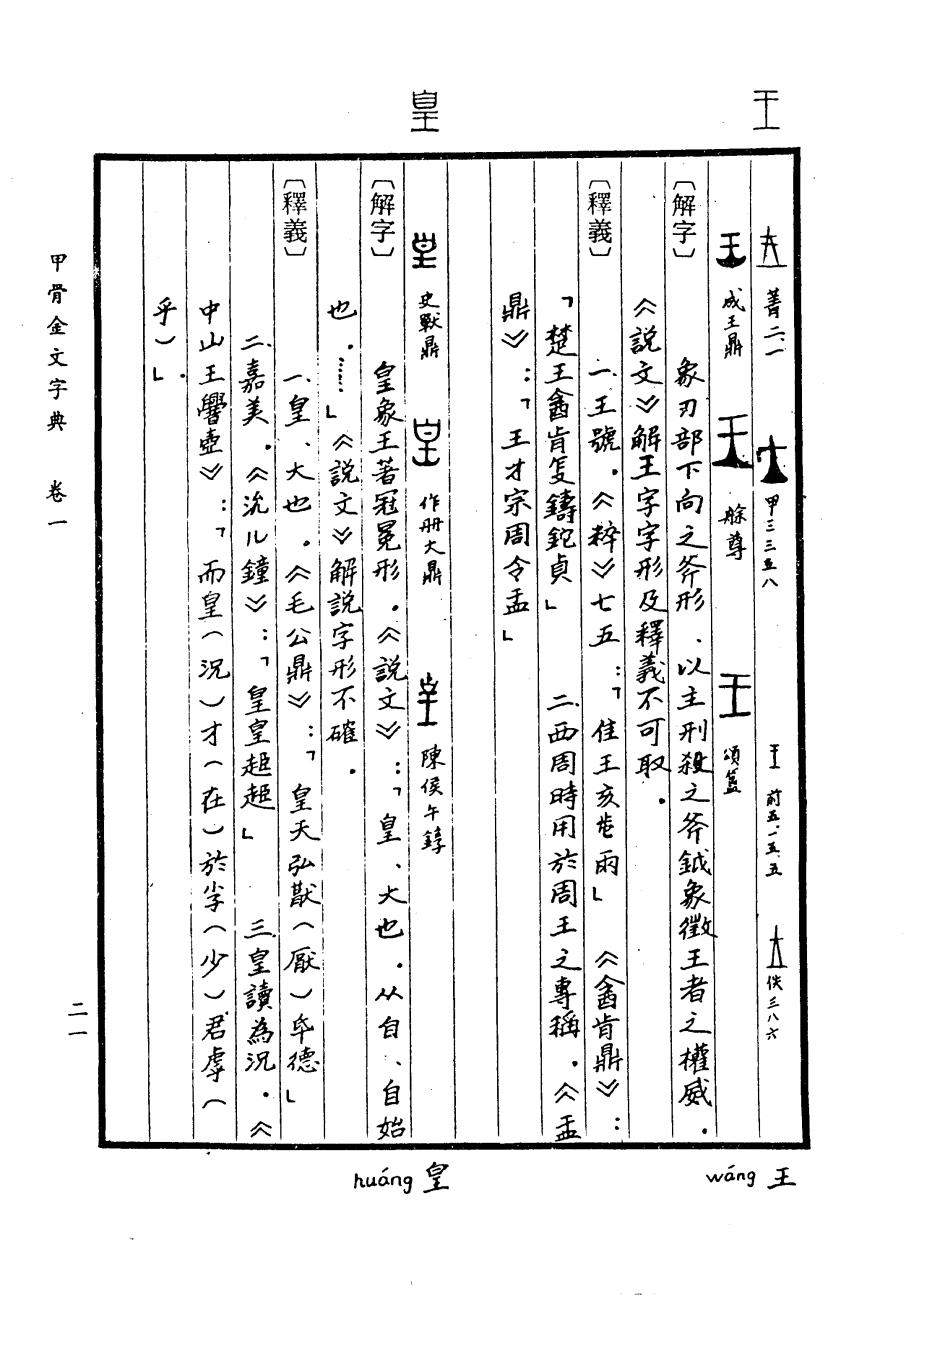 王
菁二.一 甲三三五八 前五.一五.五 佚三八六
成王鼎 艅尊 頌簋
〔解字〕 象刃部下向之斧形、以主刑殺之斧鉞象徵王者之權威.
《說文》解王字字形及釋義不可取.
〔釋義〕 一、王號.《粹》七五:「隹王亥𡆥雨」 《酓肯鼎》:
「楚王酓肯隻鑄鉈貞」 二、西周時用於周王之專稱.《盂
鼎》:「王才宗周令盂」
皇
史獸鼎 作冊大鼎 陳侯午錞
〔解字〕 皇象王著冠冕形.《說文》:「皇、大也.从自、自始
也.……」《說文》解說字形不確.
〔釋義〕 一、皇、大也.《毛公鼎》:「皇天弘猒(厭)氒德」
二、嘉美.《沇儿鐘》:「皇皇趩趩」 三、皇讀為況.《
中山王譻壺》:「而皇(況)才(在)於孛(少)君虖(
乎)」.
甲骨金文字典 卷一
二一
wáng 王
huáng 皇